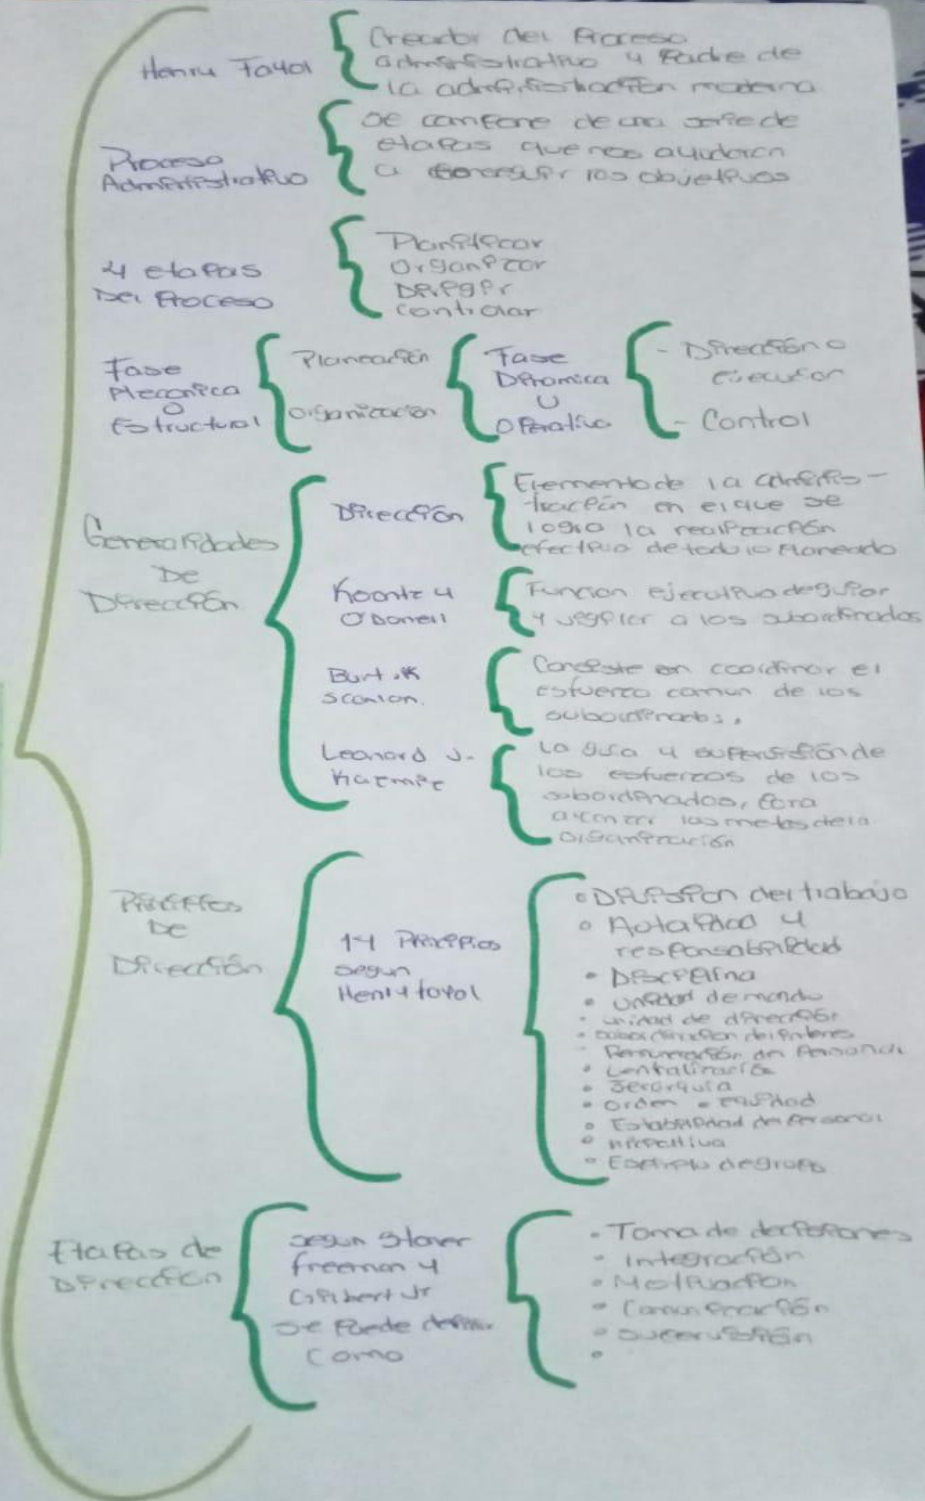 Henry Fayol
Creador del Proceso
administrativo y Padre de
la administración moderna
Proceso
Administrativo
se compone de una serie de
etapas que nos ayudaran
a conseguir los objetivos
4 etapas
Del Proceso
Planificar
Organizar
Dirigir
controlar
Fase
Mecanica
O
Estructural
Planeación
organización
Fase
Dinamica
U
Operativa
- Dirección o
ejecución
- Control
Generalidades
De
Dirección
Dirección
Elemento de la adminis-
tración en el que se
logra la realización
efectiva de todo lo planeado
Koontz y
O'Donell
Funcion ejecutiva de guiar
y vigilar a los subordinados
Burt .K
scanlan.
Consiste en coordinar el
esfuerzo comun de los
subordinados.
Leonard J.
Kazmir
La guía y supervisión de
los esfuerzos de los
subordinados, para
alcanzar las metas de la
organización
Principios
De
Dirección
14 Principios
segun
Henry fayol
• Division del trabajo
• Autoridad y
responsabilidad
• Disciplina
• unidad de mando
• unidad de dirección
• subordinacion del interes
• Remuneración del Personal
• Centralización
• Jerarquía
• orden • equidad
• Estabilidad del Personal
• iniciativa
• Espiritu de grupo
Etapas de
Dirección
segun Stoner
freeman y
Gilbert Jr
se Puede definir
Como
• Toma de decisiones
• Integración
• Motivacion
• Comunicación
• supervisión
•